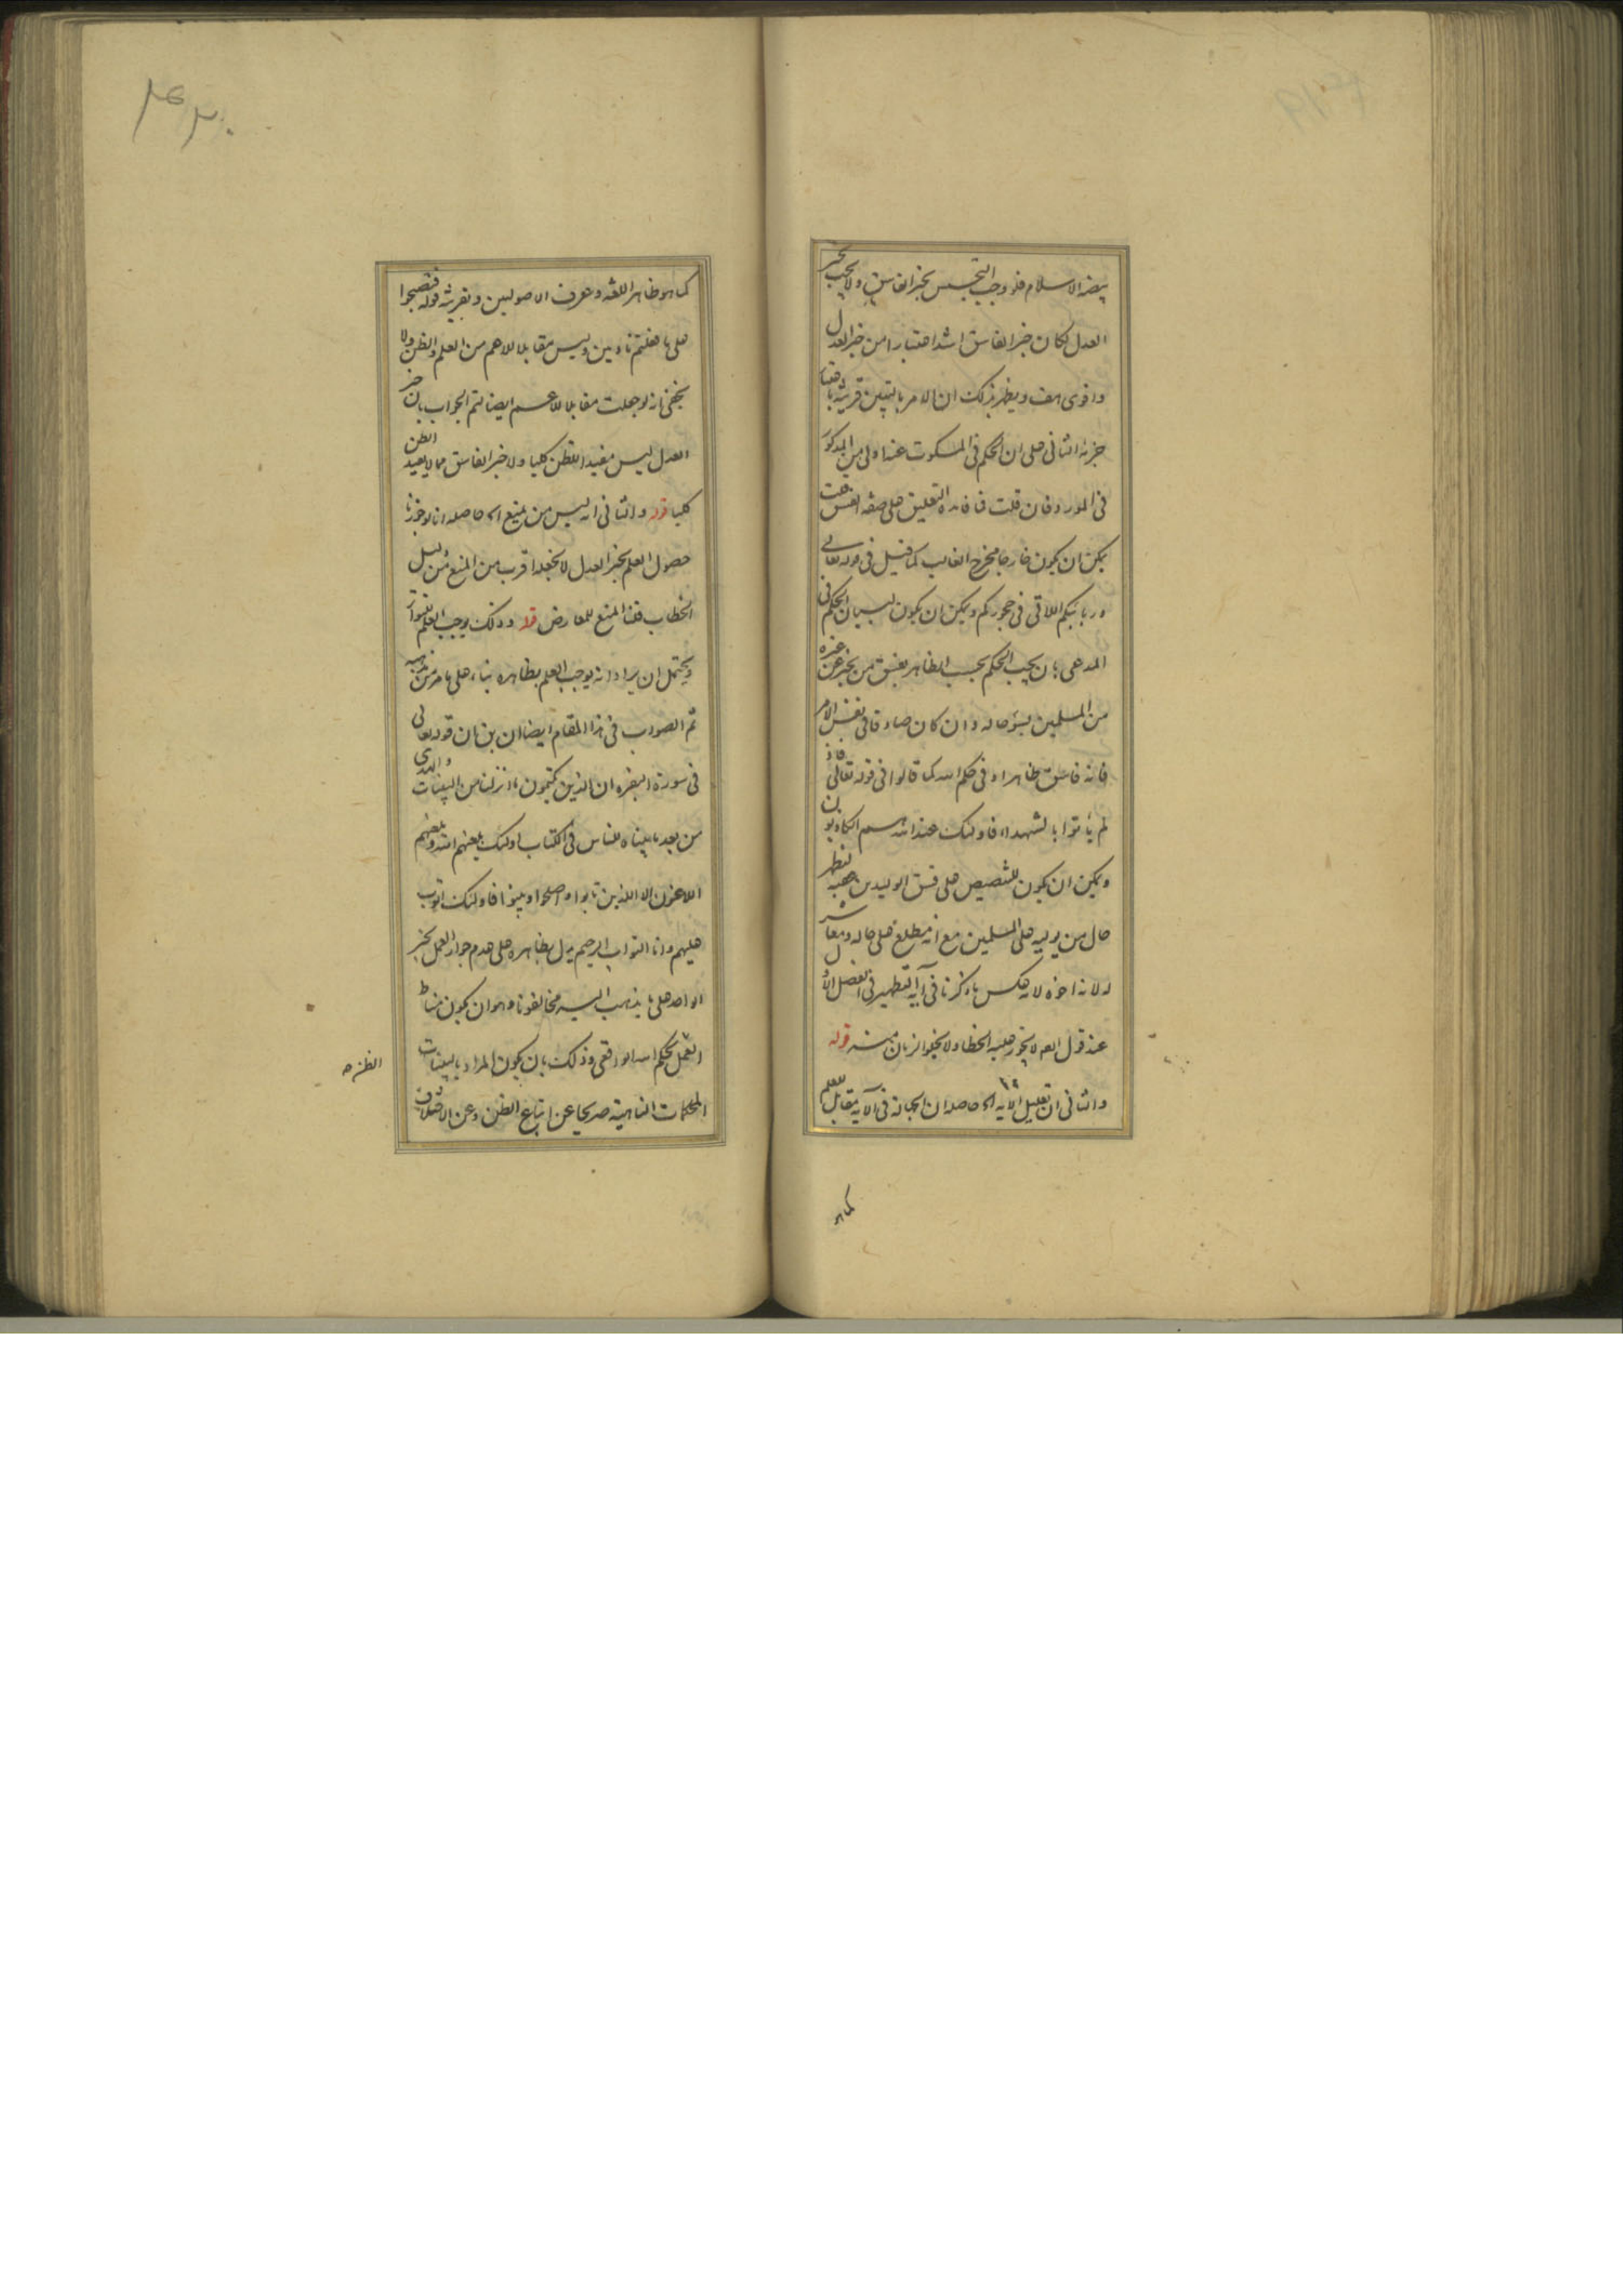 بيضة الاسلام فلو وجب التجسس بخبر الفاسق ولا يجب بخبر
العدل لكان خبر الفاسق اشد اعتبارا من خبر العدل
واقوى هف ويظهر بذلك ان الامر بالتبين قرينة باعتبار
جزئه الثانى على ان الحكم فى المسكوت عنه اولى من المذكور
فى المورد فان قلت فما فائدة التعليق على صفة الفسق قلت
يمكن ان يكون خارجا مخرج الغالب كما قيل فى قوله تعالى
وربائبكم اللاتى فى حجوركم ويمكن ان يكون لبيان الحكم فى
المدعى بان يجب الحكم بحسب الظاهر بفسق من يخبر عن غيره
من المسلمين بسوء حاله وان كان صادقا فى نفس الامر
فانه فاسق ظاهرا وفى حكم الله كما قالوا فى قوله تعالى فاذ
لم ياتوا بالشهداء فاولئك عند الله هم الكاذبون
ويمكن ان يكون للتنصيص على فسق الوليد بن عقبة لينظر
حال من يوليه على المسلمين مع انه مطلع على حاله ومعاشر
له لانه اخوه لامه عكس ما ذكرنا فى آية التطهير فى الفصل الاول
عند قول المص لا يجوز عليه الخطا ولا يخلوا زمان منه قوله
والثانى ان تعليل الآية الخ حاصله ان الجهالة فى الآية مقابل للعلم
كما هو
كما هو ظاهر اللغة وعرف الاصوليين وبقرينة قوله فتصبحوا
على ما فعلتم نادمين وليس مقابلا للاعم من العلم والظن ولا
يخفى انه لو جعلت مقابلا للاعم ايضا لتم الجواب بان خبر
العدل ليس مفيدا للظن كليا ولا خبر الفاسق مما لا يفيد الظن
كليا قوله والثانى انه ليس من يمنع الخ حاصله انا لو جوزنا
حصول العلم بخبر العدل لا نجعله اقرب من المنع من دليل
الخطاب فلنا المنع للمعارض قوله وذلك يوجب العلم كالمتواتر
ويحتمل ان يراد انه يوجب العلم بظاهره بناء على ما مر من مذهبه
ثم الصواب فى هذا المقام ايضا ان بن ان قوله تعالى
فى سورة البقرة ان الذين يكتمون ما انزلنا من البينات والهدى
من بعد ما بيناه للناس فى الكتاب اولئك يلعنهم الله ويلعنهم
اللاعنون الا الذين تابوا واصلحوا وبينوا فاولئك اتوب
عليهم وانا التواب الرحيم يدل بظاهره على عدم جواز العمل بخبر
الواحد على ما يذهب اليه مخالفونا وهو ان يكون مناط
العمل بحكم الله الواقعى وذلك بان يكون المراد بالبينات
المحكمات الناهية صريحا عن اتباع الظن وعن الاختلاف
الظن ه